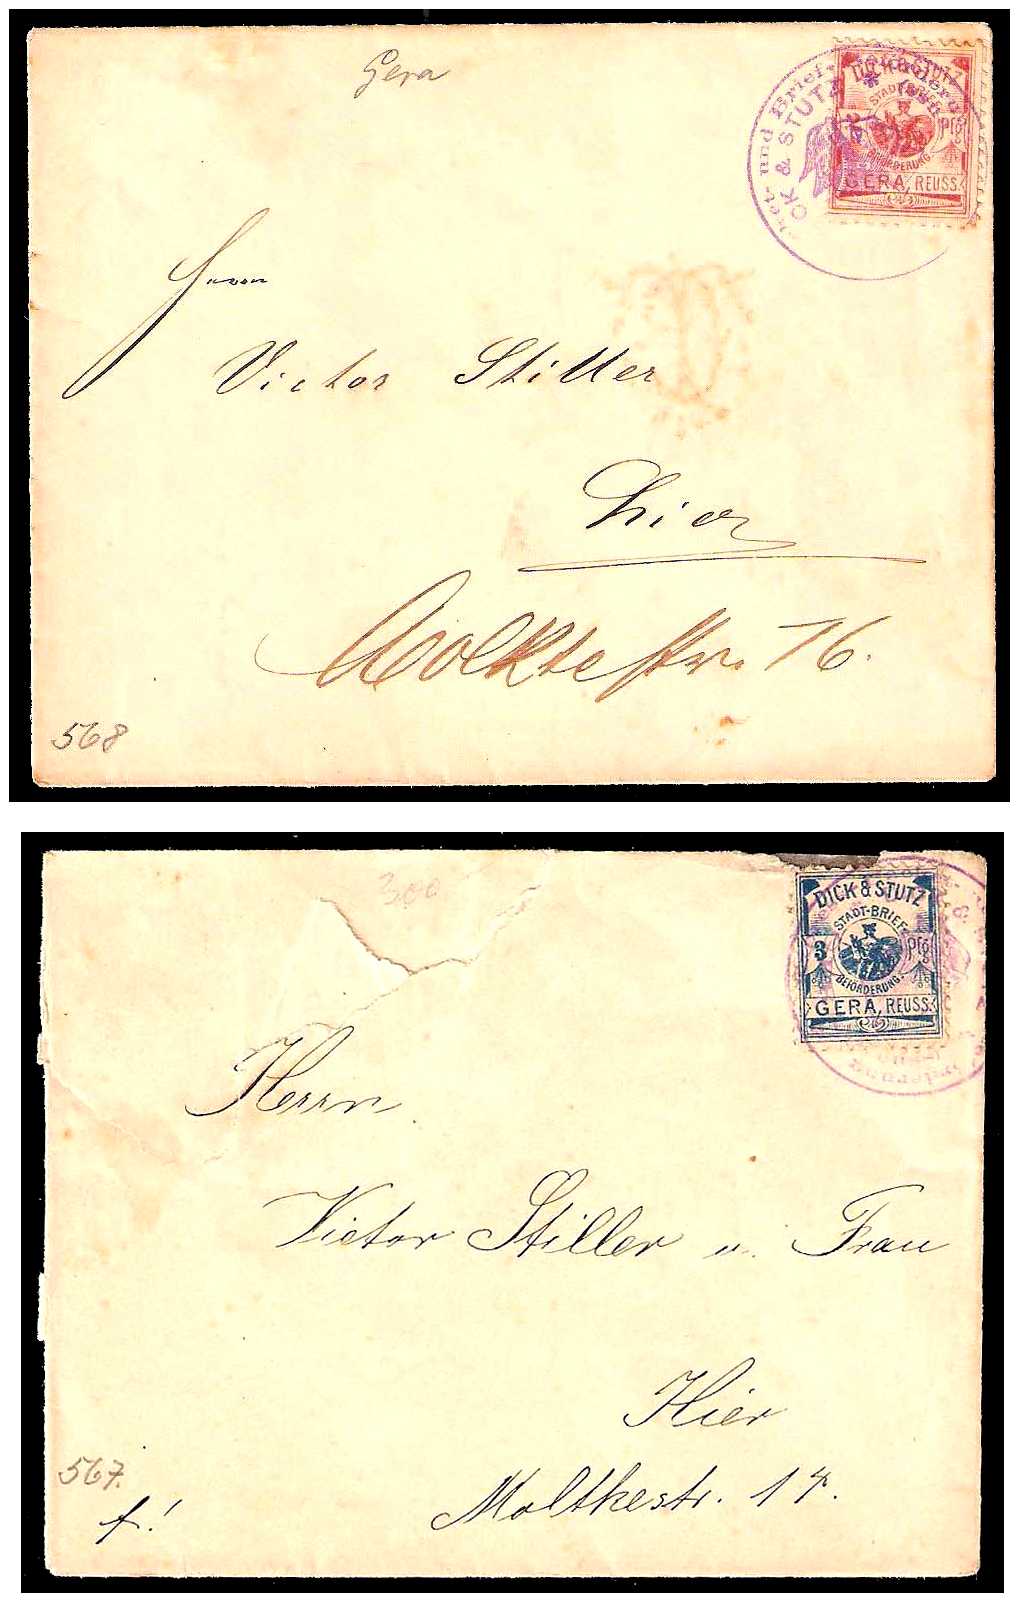 Gera
und Brief-
CK & STUTZ *
DICK & STUTZ
STADT-BRIEF-
Pfg
BEFÖRDERUNG
GERA, REUSS.
Herrn
Victor Stiller
Hier
Moltkestr. 16.
568
300
DICK & STUTZ
STADT-BRIEF-
3 Pfg
BEFÖRDERUNG.
GERA, REUSS.
Herrn
Victor Stiller u. Frau
Hier
Moltkestr. 17.
567.
f!